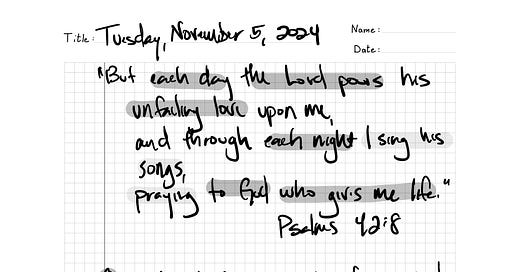 Title: Tuesday, November 5, 2024
Name:
Date:
"But each day the Lord pours his
unfailing love upon me,
and through each night I sing his
songs,
praying to God who gives me life."
Psalms 42:8